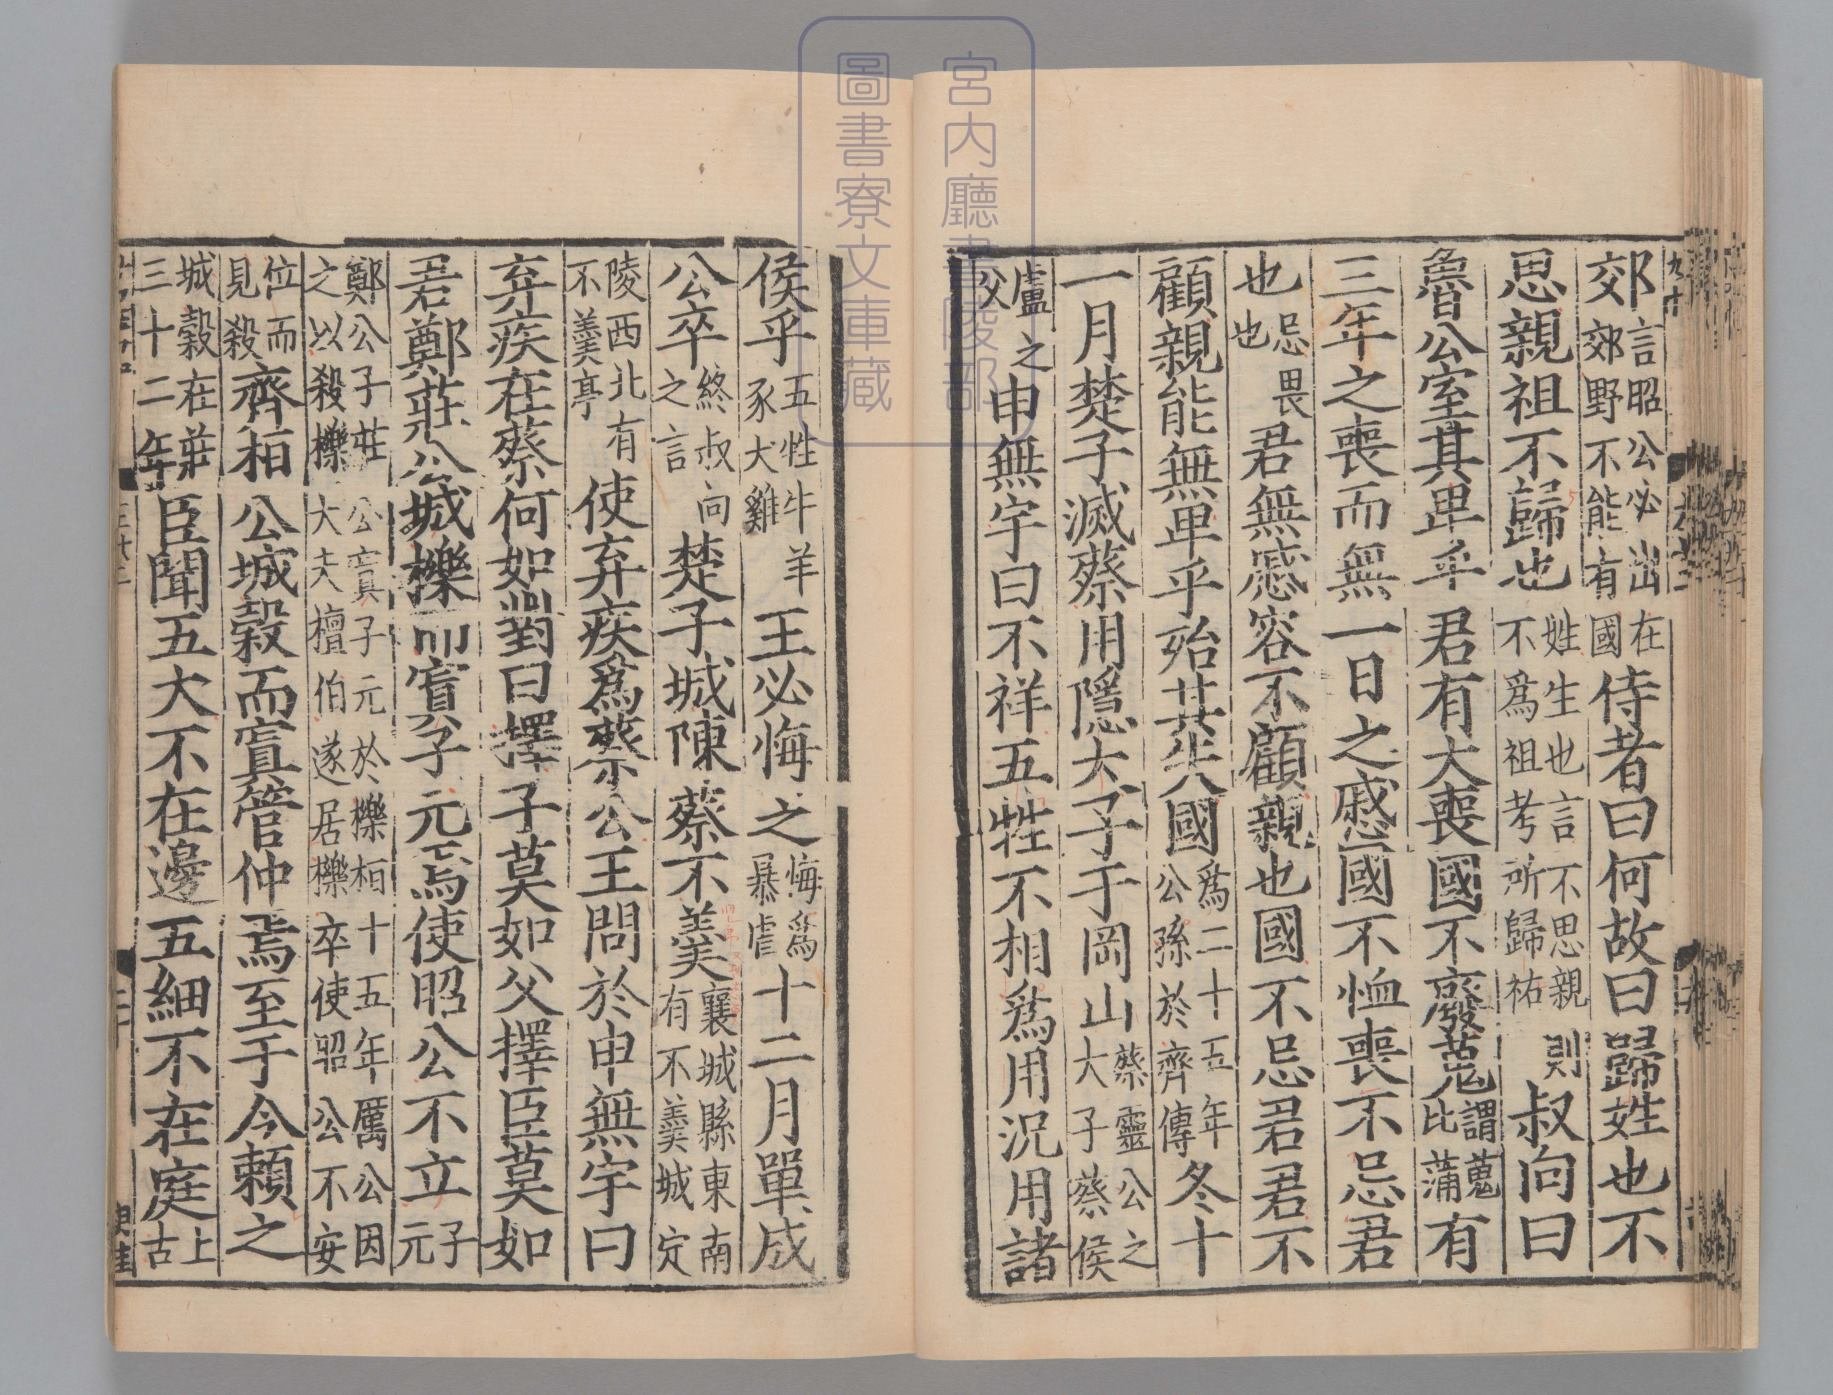 郊言昭公必出在郊野不能有國侍者曰何故曰歸姓也不
思親祖不歸也姓生也言不思親則不爲祖考所歸祐叔向曰
魯公室其卑乎君有大喪國不廢蒐謂蒐比蒲有
三年之喪而無一日之慼國不恤喪不忌君
也忌畏也君無慼容不顧親也國不忌君君不
顧親能無卑乎殆其失國爲二十五年公孫於齊傳冬十
一月楚子滅蔡用隱太子于岡山蔡靈公之大子蔡侯
盧之父申無宇曰不祥五牲不相爲用況用諸
侯乎五牲牛羊豕犬雞王必悔之悔爲暴虐十二月單成
公卒終叔向之言楚子城陳蔡不羹襄城縣東南有不羹城定
陵西北有不羹亭使弃疾爲蔡公王問於申無宇曰
弃疾在蔡何如對曰擇子莫如父擇臣莫如
君鄭莊公城櫟而寘子元焉使昭公不立子元
鄭公子莊公寘子元於櫟桓十五年厲公因之以殺櫟大夫檀伯遂居櫟卒使昭公不安
位而見殺齊桓公城穀而寘管仲焉至于今賴之
城穀在莊三十二年臣聞五大不在邊五細不在庭上古
宮内廳書陵部
圖書寮文庫藏